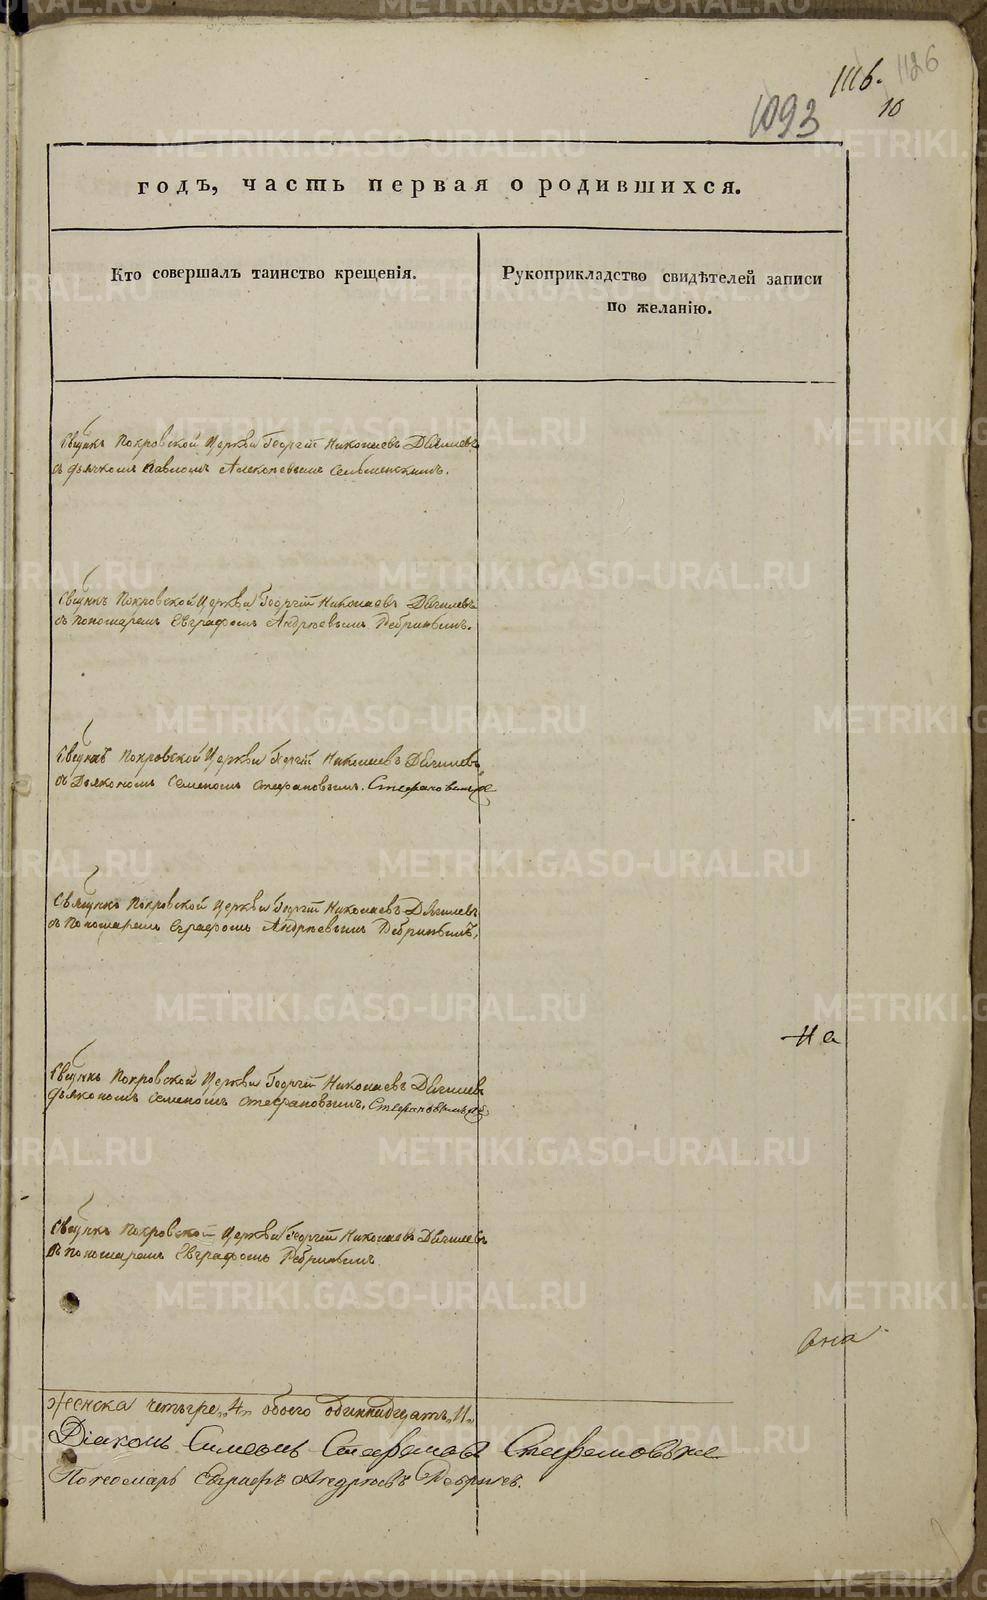 1116.
1126
1093
10
годъ, часть первая о родившихся.
Кто совершалъ таинство крещенія.
Рукоприкладство свидѣтелей записи
по желанію.
Свщнкъ Покровской Церкви Георгій Николаевъ Дягилевъ
съ дьячкомъ Павломъ Алексѣевымъ
Свщнкъ Покровской Церкви Георгій Николаевъ Дягилевъ
съ пономаремъ Евграфомъ Андрѣевымъ Ребринымъ.
Свщнкъ Покровской Церкви Георгій Николаевъ Дягилевъ
съ Дьякономъ Семеномъ Стефановымъ Стефановымъ же
Свящнкъ Покровской Церкви Георгій Николаевъ Дягилевъ
съ Пономаремъ Евграфомъ Андрѣевымъ Ребринымъ.
На
Свщнкъ Покровской Церкви Георгій Николаевъ Дягилевъ
дьякономъ Семеномъ Стефановымъ, Стефановымъ же
Свщнкъ Покровской Церкви Георгій Николаевъ Дягилевъ
съ пономаремъ Евграфомъ Ребринымъ
женска четыре „4„ обоего одиннадцать „11„
Діаконъ Симеонъ Стефановъ Стефановъ же
Пономарь Евграфъ Андрѣевъ Ребринъ.
METRIKI.GASO-URAL.RU